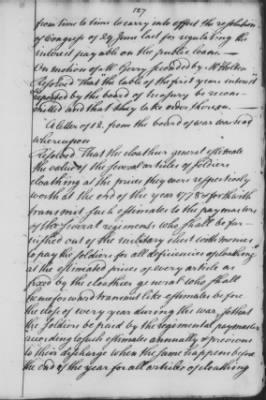 127
from time to time to carry into effect the resolution
of Congress of 29 June last for regulating the
interest payable on the public loans.—
On motion of Mr Gerry seconded by Mr Holten
Resolved That "the table of the first years interest"
reported by the board of treasury be recom-
mitted and that they take order thereon.—
A letter of 12. from the board of war was read
whereupon
Resolved That the cloathier general estimate
the value of the several articles of soldiers
cloathing at the prices they were respectively
worth at the end of the year 1778 & forthwith
transmit such estimates to the paymasters
of the several regiments who shall be fur-
nished out of the military chest with monies
to pay the soldiers for all deficiencies of cloathing
at the estimated prices of every article as
fixed by the cloathier general who shall
henceforward transmit like estimates before
the close of every year during the war, so that
the soldiers be paid by the regimental paymaster
according to such estimates annually & previous
to their discharge when the same happens before
the end of the year for all articles of cloathing